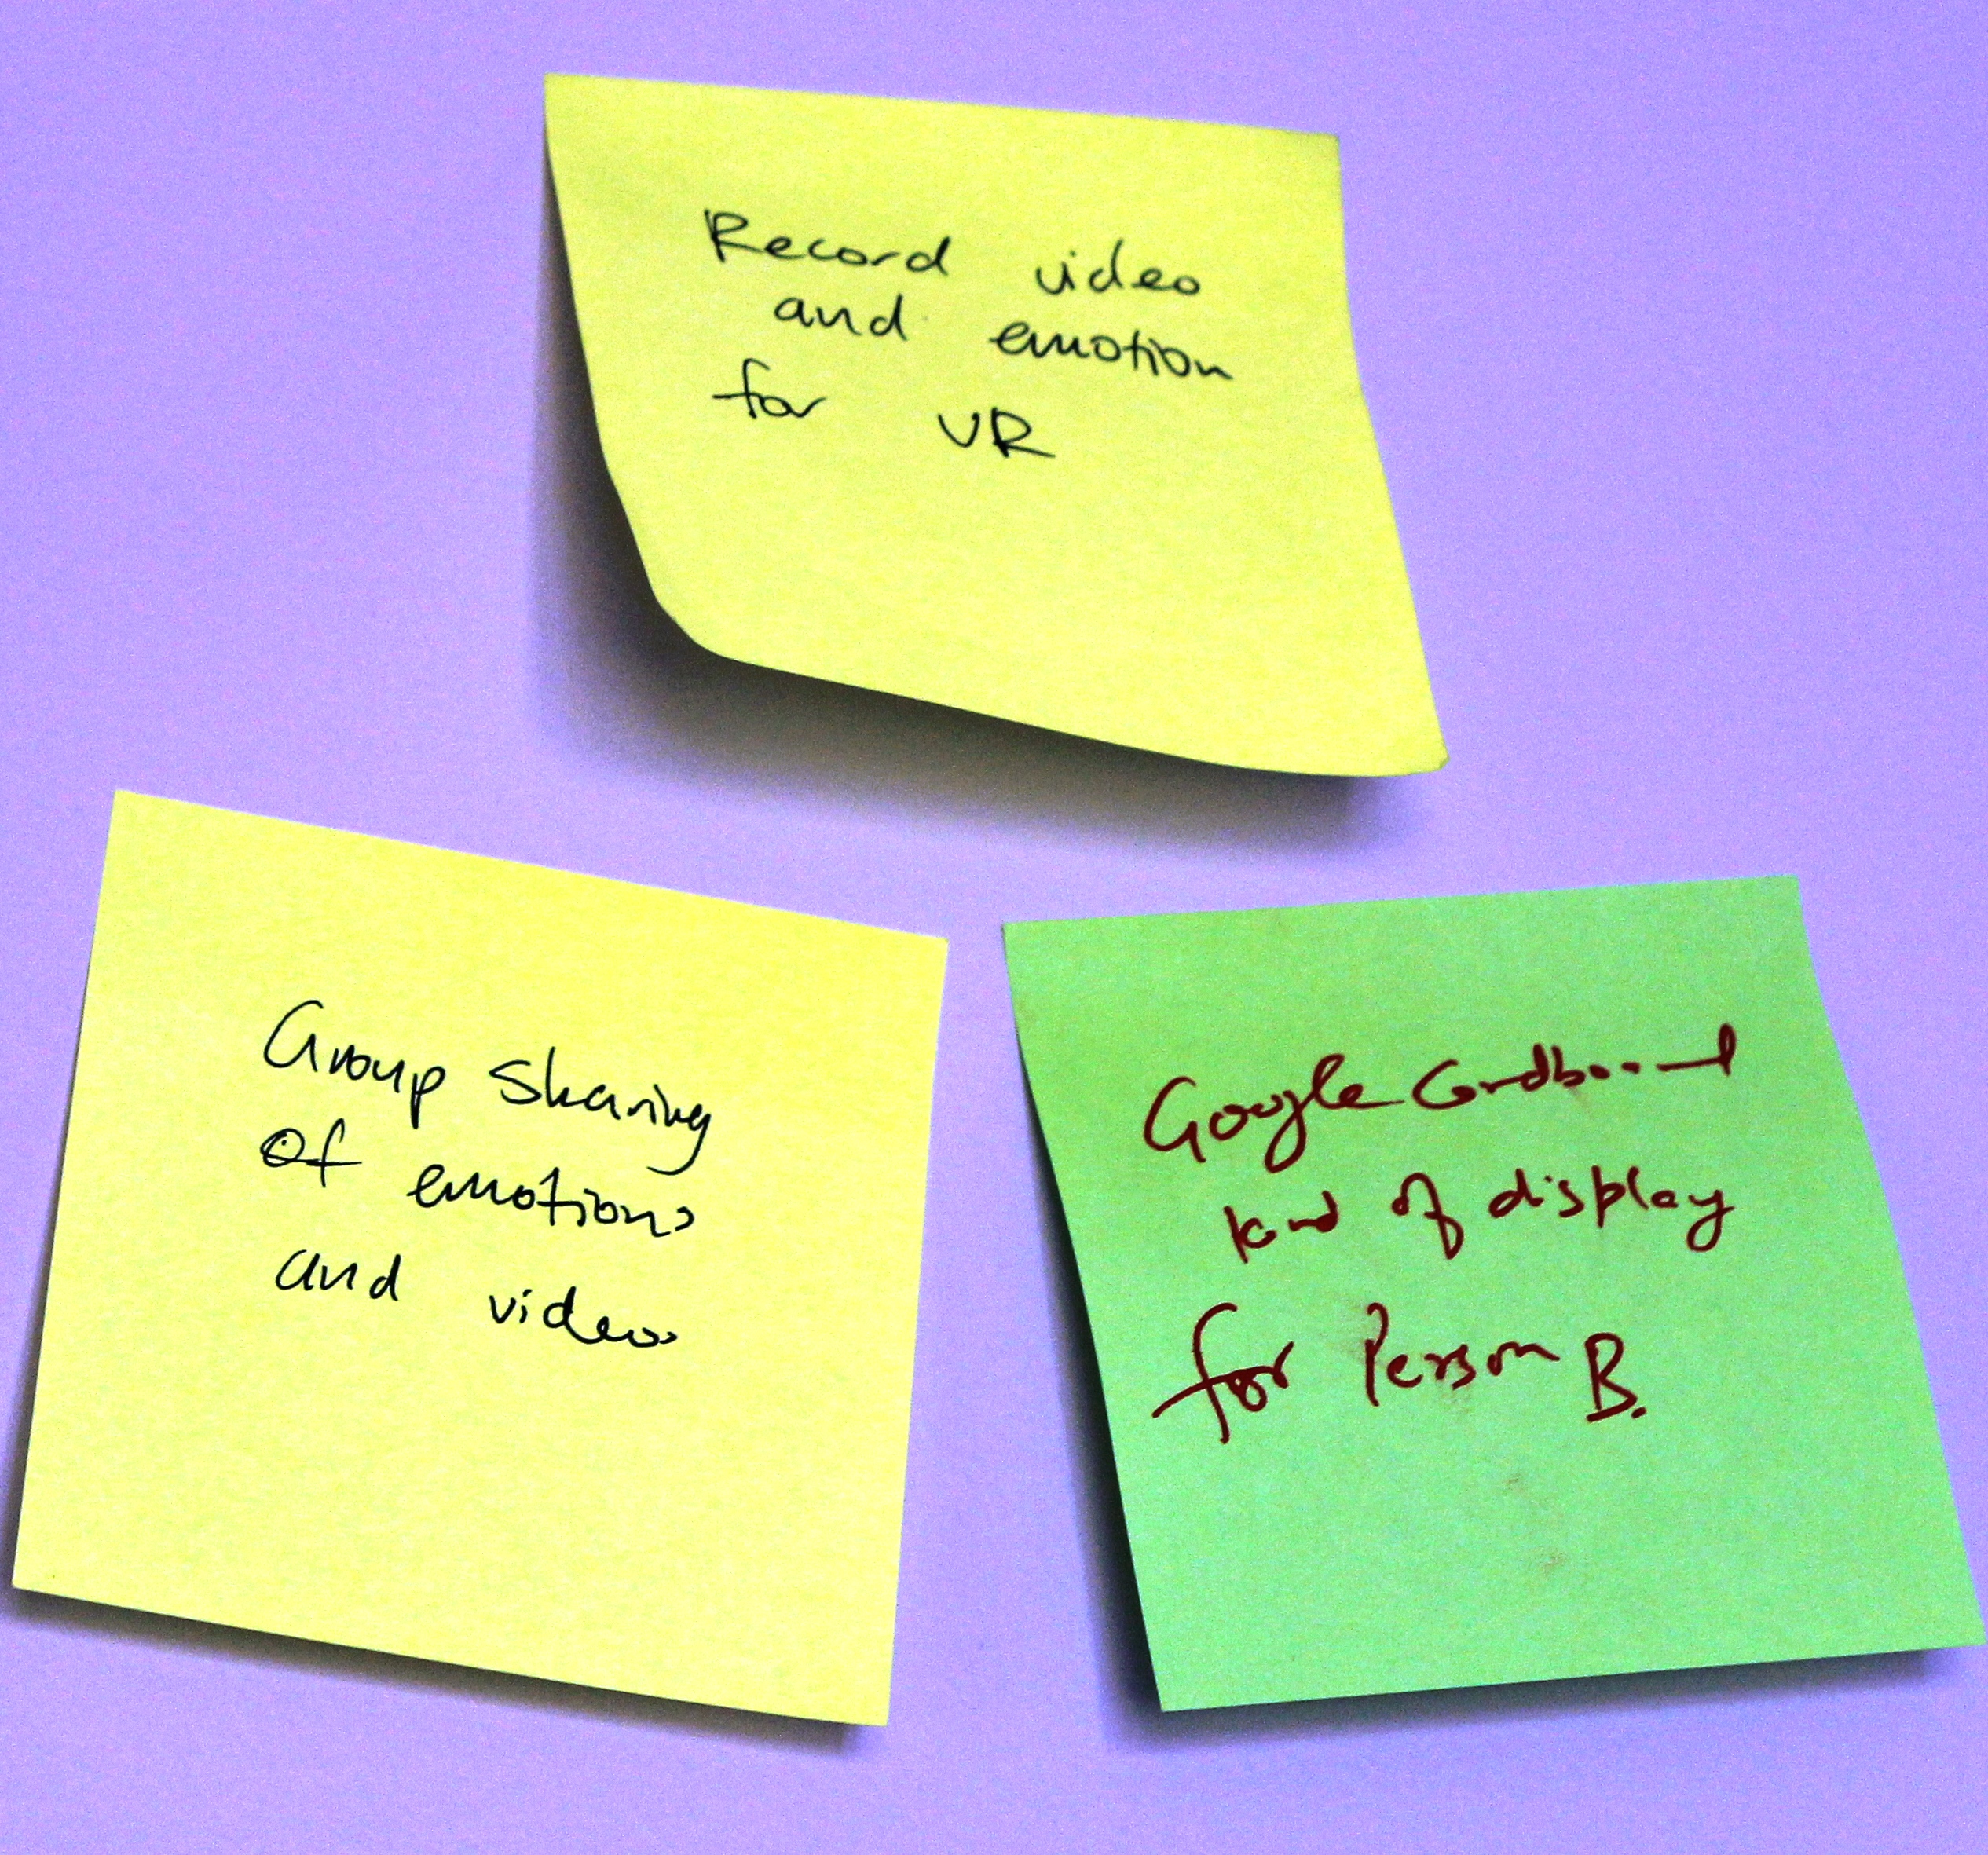 Record video
and emotion
for VR
Group Sharing
Of emotions
and videos
Google Cardboard
kind of display
for Person B.